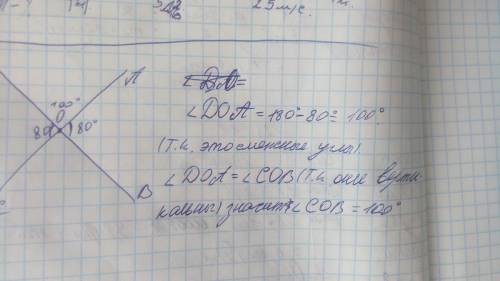 25 м/с.
100°
A
O
80
80°
B
C
∠DOA = 180° - 80° = 100°
(т.к. это смежные углы).
∠DOA = ∠COB (т.к. они верти
кальны) значит ∠COB = 100°